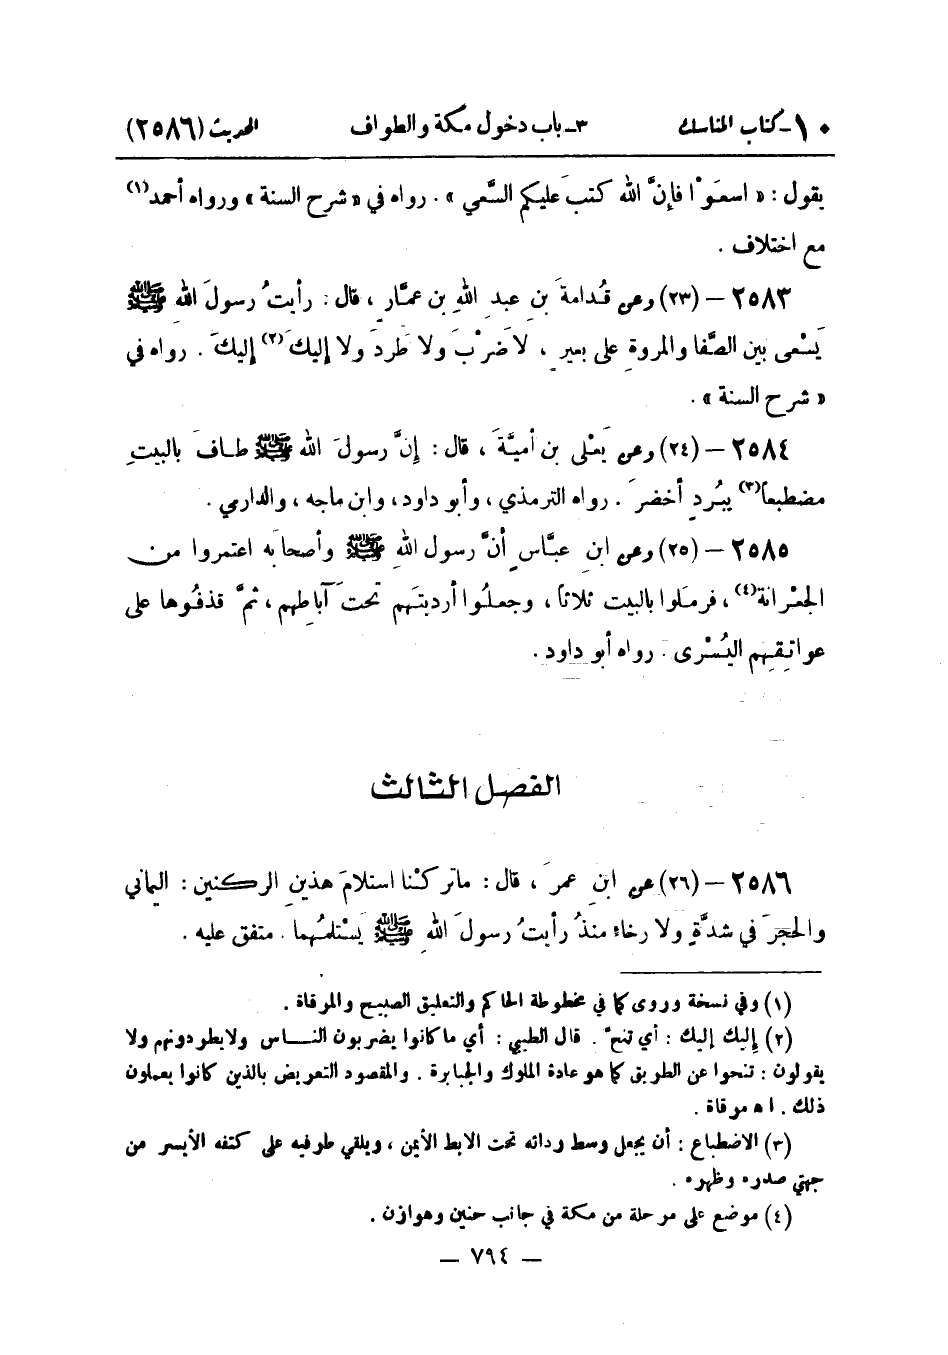 ١٠ـ كتاب المناسك ٣ـ باب دخول مكة والطواف الحديث (٢٥٨٦)
يقول : « اسعَوْا فإنَّ الله كتبَ عليكم السَّعي » . رواه في « شرح السنة » ورواه أحمد(١)
مع اختلاف .
٢٥٨٣ – (٢٣) وعن قُدامةَ بنِ عبد اللهِ بنِ عمَّارٍ ، قال : رأيتُ رسولَ اللهِ ﷺ
يَسْعى بين الصَّفا والمروةِ على بعيرٍ ، لا ضَرْبَ ولا طَردَ ولا إليكَ(٢) إليكَ . رواه في
« شرح السنة » .
٢٥٨٤ – (٢٤) وعن يَعْلى بنِ أميَّةَ ، قال : إنَّ رسولَ الله ﷺ طافَ بالبيتِ
مضطبعاً(٣) ببُردٍ أخضرَ . رواه الترمذي ، وأبو داود ، وابن ماجه ، والدارمي .
٢٥٨٥ – (٢٥) وعن ابنِ عبَّاسٍ أنَّ رسول اللهِ ﷺ وأصحابَه اعتمروا من
الجعْرانة(٤) ، فرمَلوا بالبيت ثلاثاً ، وجعلُوا أرديتَهم تحتَ آباطِهم ، ثمَّ قذفُوها على
عواتِقِهم اليُسْرى . رواه أبو داود .
الفصل الثالث
٢٥٨٦ – (٢٦) عن ابنِ عمرَ ، قال : ماتركْنا استلامَ هذينِ الركنينِ : اليماني
والحجرَ في شدَّةٍ ولا رخاءٍ منذُ رأيتُ رسولَ اللهِ ﷺ يَسْتلمُهما . متفق عليه .
(١) وفي نسخة وروى كما في مخطوطة الحاكم والتعليق الصبيح والمرقاة .
(٢) إليك إليك : أي تنح . قال الطيبي : أي ما كانوا يضربون النـاس ولايطردونهم ولا
يقولون : تنحوا عن الطريق كما هو عادة الملوك والجبابرة . والمقصود التعريض بالذين كانوا يعملون
ذلك . ا ه مرقاة .
(٣) الاضطباع : أن يجعل وسط ردائه تحت الابط الأيمن ، ويلقي طرفيه على كتفه الأيسر من
جهتي صدره وظهره .
(٤) موضع على مرحلة من مكة في جانب حنين وهوازن .
– ٧٩٤ –